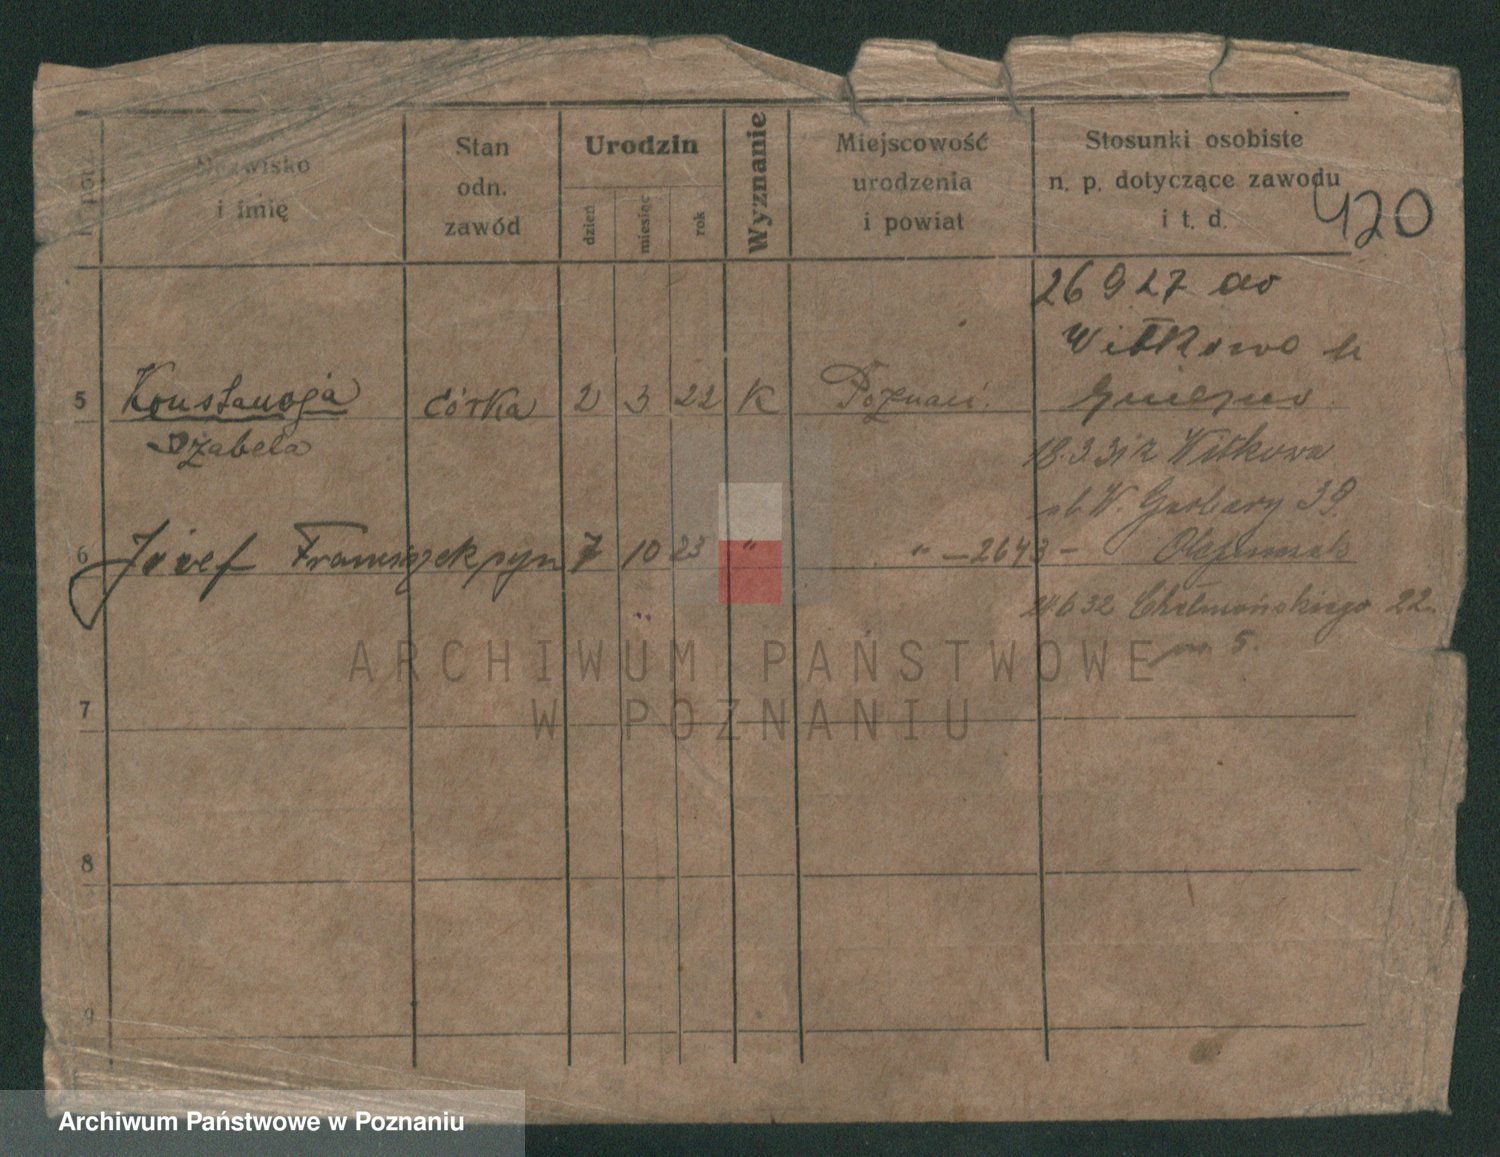 Nazwisko
i imię
Stan
odn.
zawód
Urodzin
dzień
miesiąc
rok
Wyznanie
Miejscowość
urodzenia
i powiat
Stosunki osobiste
n. p. dotyczące zawodu
i t. d.
420
26 9 27 do
Witkowo
5 Konstancja córka 2 3 22 K Poznań. Gniezno
Izabela 18.3.31 z Witkowa
W. Garbary 39
6 Józef Franciszek syn 7 10 23 " " —2643—
24632 Chełmońskiego 22
m. 5.
ARCHIWUM PAŃSTWOWE
W POZNANIU
7
8
9
Archiwum Państwowe w Poznaniu